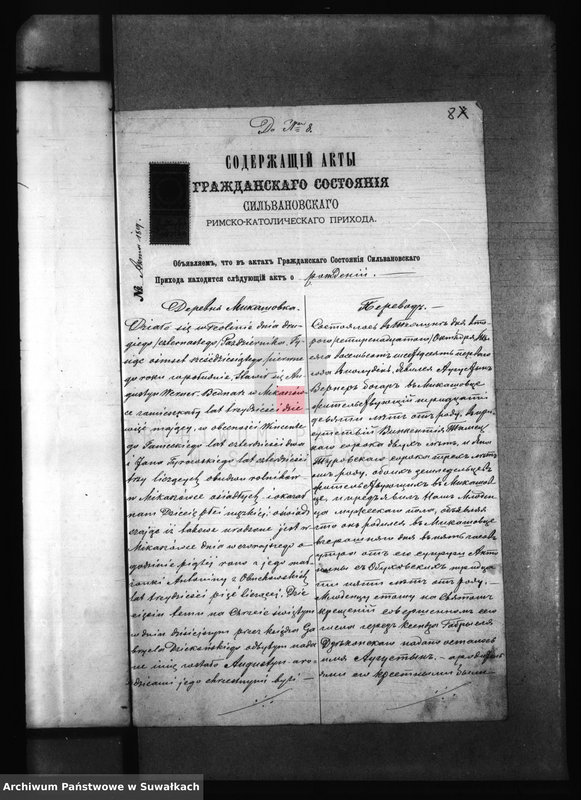 До № 8.
8
СОДЕРЖАЩІЙ АКТЫ
ГРАЖДАНСКАГО СОСТОЯНІЯ
СИЛЬВАНОВСКАГО
РИМСКО-КАТОЛИЧЕСКАГО ПРИХОДА.
Объявляемъ, что въ актахъ Гражданскаго Состоянія Сильвановскаго
Прихода находится слѣдующій актъ о рожденій.
№
Деревня Микашовка.
Działo się w Teolinie dnia dru-
giego /czternastego/ Października Ty-
siąc ośmset sześćdziesiątego pierwsze-
go roku o południu, Stawił się Au-
gustyn Werner Bednarz w Mikaszów-
ce zamieszkały lat trzydzieści dzie-
więć mający, w obecności Wincente-
go lat czterdzieści dwa
i Jana Turowskiego lat czterdzieści
trzy liczących obudwu rolników
w Mikaszówce osiadłych i okazał
nam Dziecię płci męzkiej, oświad-
czając iż takowe urodzone jest w
Mikaszówce dnia wczorajszego o
godzinie piątej rano z jego mał-
żonki Antoniny z Obuchowskich
lat trzydzieści pięć liczącej. Dzie-
cięciu temu na Chrzcie świętym
w dniu dzisiejszym przez księdza Ga-
bryela odbytym nada-
ne imię zostało Augustyn a ro-
dzicami jego chrzestnymi byli
Переводъ.
Состоялось въ Теолинѣ дня вто-
раго /четырнадцатаго/ Октября Ты-
сяча восемьсотъ шестьдесятъ перваго
года въ полудня, явился Августынъ
Вернеръ боцаръ въ Микашовце
жительствующій тридцать
девяти лѣтъ отъ роду, въ при-
сутствіи Викентія
каго сорока двухъ лѣтъ, и Яна
Туровскаго сорока трехъ лѣтъ
отъ роду, обоихъ земледѣльцевъ
жительствующихъ въ Микашов-
це, и предъявилъ Намъ Младен-
ца мужескаго пола, объявляя
что онъ родился въ Микашовце
вчерашняго дня въ пять часовъ
утра отъ его супруги Анто-
нины съ Обуховскихъ тридца-
ти пяти лѣтъ отъ роду.
Младенцу этому на Святомъ
крещеніи совершенномъ сего
числа чрезъ Ксендза Габрыеля
дано осталось
имя Августынъ, а родителя-
ми его крестными были
Archiwum Państwowe w Suwałkach